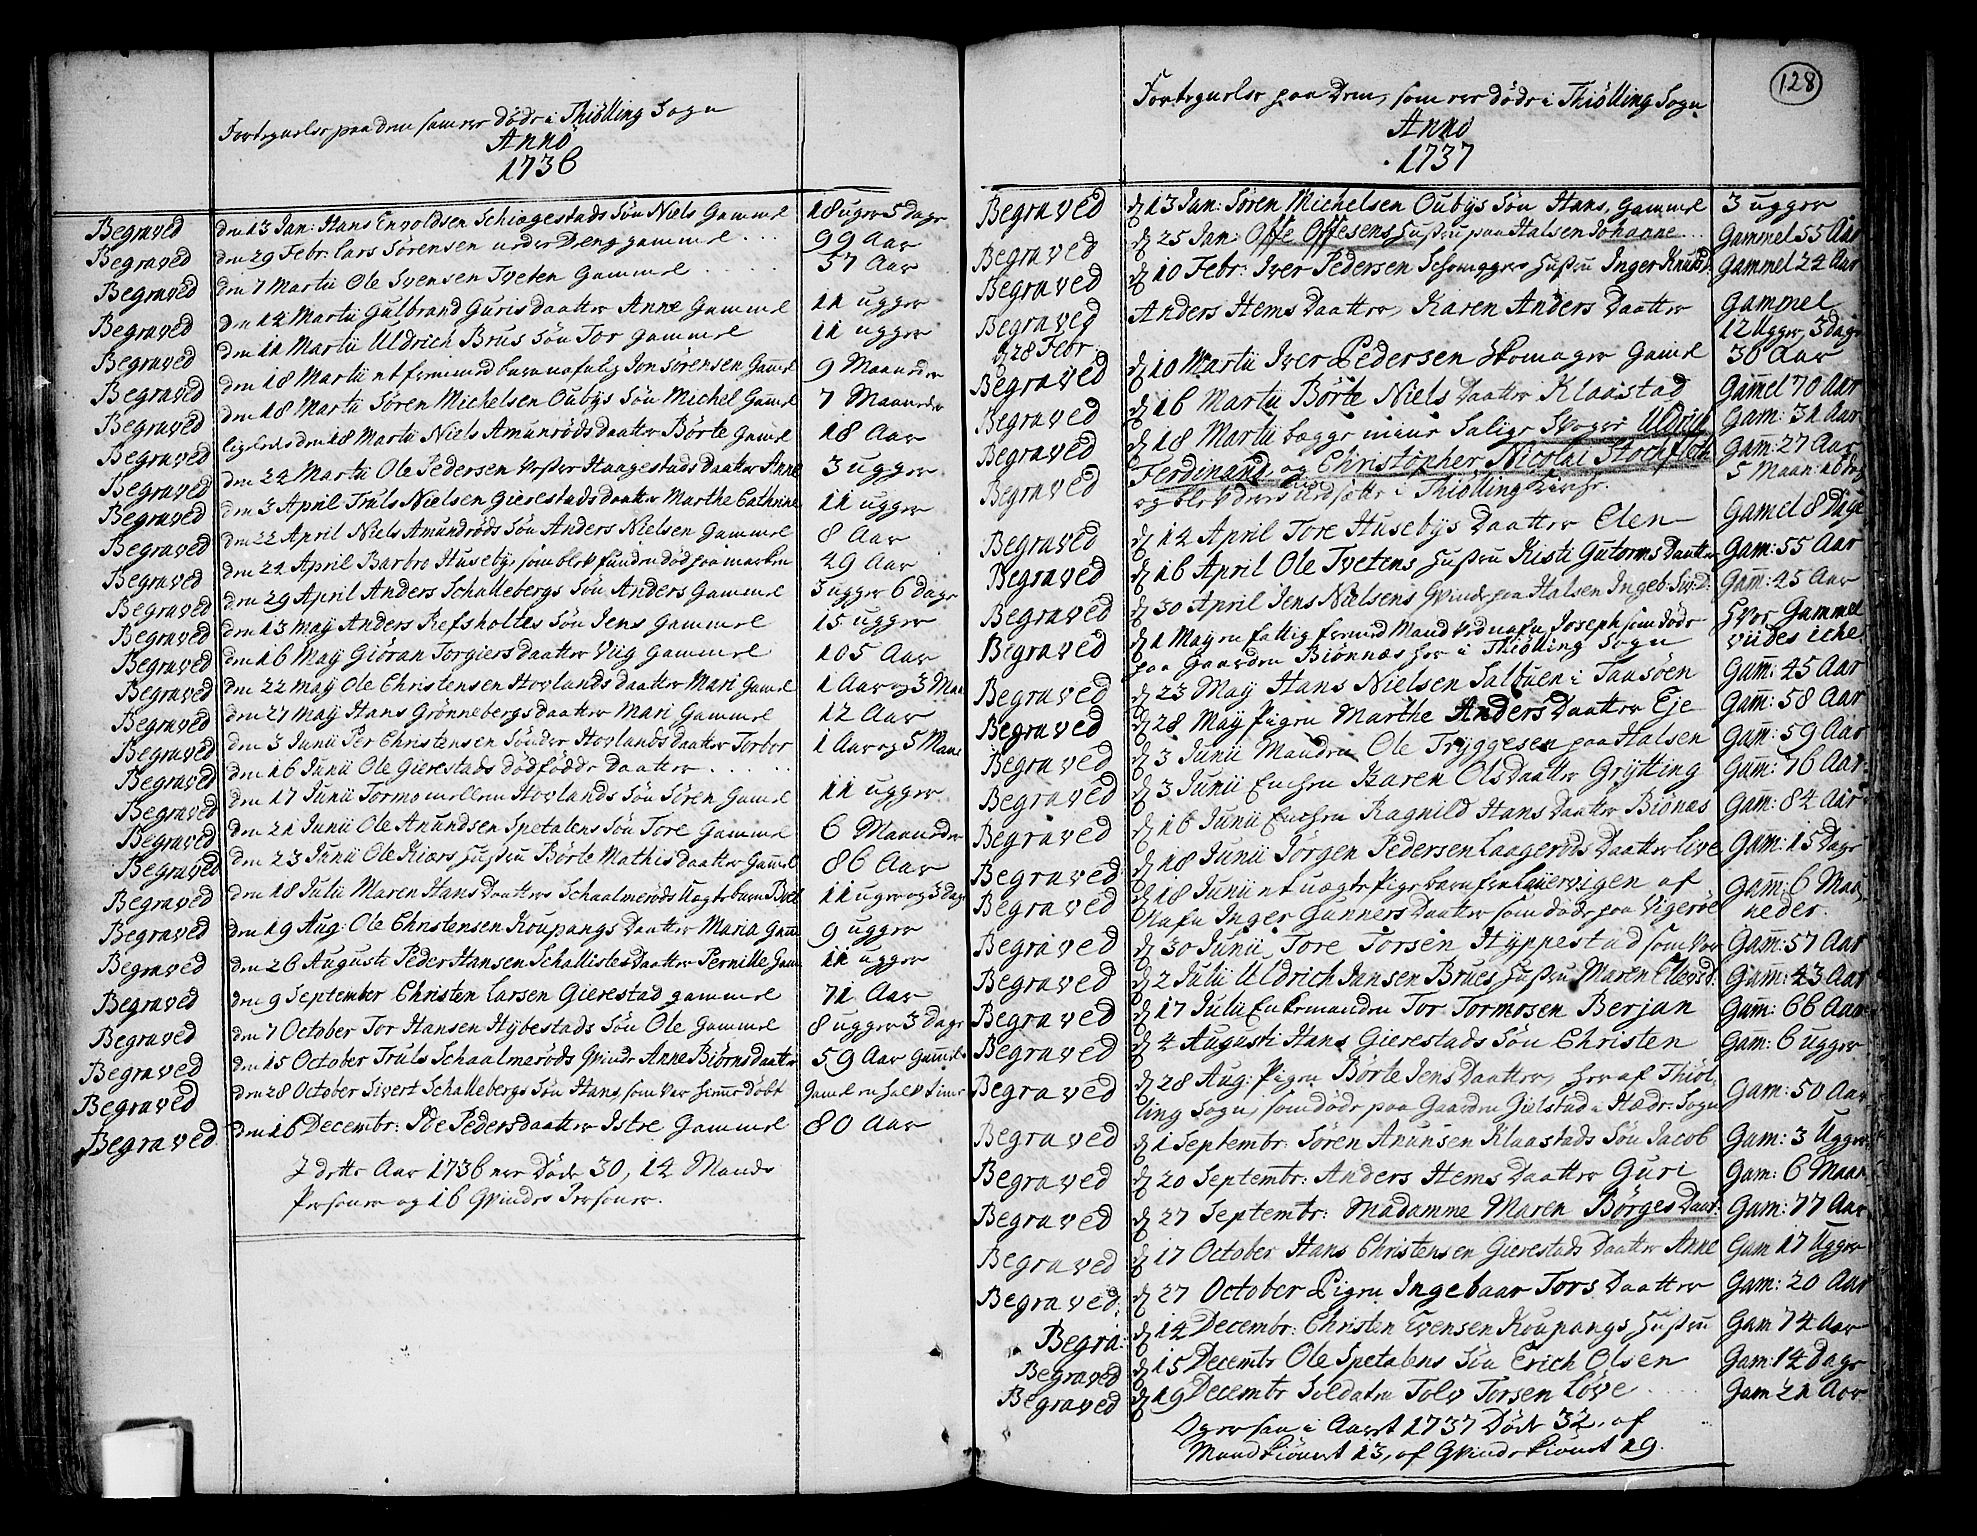 Fortegnelse paa dem som ere døde i Thiølling Sogn
Anno
1736
Begraved den 13 Jan: Hans Envoldsen Schiægestads Søn Niels Gammel 18 uger 5 dage
Begraved den 29 Febr: Lars Sørensen gammel 99 Aar
Begraved den 7 Martii Ole Svensen Tveten Gammel 57 Aar
Begraved den 14 Martii Gulbrand Guris daatter Anne Gammel 11 ugger
Begraved den 11 Martii Uldrich Brus Søn Tor Gammel 11 ugger
Begraved den 18 Martii et fremmed barn nafnlig Jon Sørensen Gamel 9 Maaneder
Begraved den 18 Martii Søren Michelsen Oubÿs Søn Michel Gamel 7 Maaneder
Begraved ligeledes den 18 Martii Niels Amunrøds daatter Børte Gamel 18 Aar
Begraved den 24 Martii Ole Pedersen Vester Haagestads daatter Anne 3 ugger
Begraved den 3 April Truls Nielsen Gierestads daatter Marthe Cathrine 11 ugger
Begraved den 22 April Niels Amundrøds Søn Anders Nielsen Gammel 8 Aar
Begraved den 24 April Barbro Husebÿ, som blef funden død paa marken 49 Aar
Begraved den 29 April Anders Schallebergs Søn Anders Gammel 3 ugger 6 dage
Begraved den 13 Maÿ Anders Refsholtes Søn Jens Gammel 15 ugger
Begraved den 16 Maÿ Giøran Torgiers daatter Viig Gammel 105 Aar
Begraved den 22 Maÿ Ole Christensen Hovlands daatter Mari Gamel 1 Aar og 3 Maa
Begraved den 27 Maÿ Hans Grønnebergs daatter Mari Gammel 12 Aar
Begraved den 3 Junii Per Christensen Sønder Hovlands daatter Torbor 1 Aar og 5 Maane
Begraved den 16 Junii Ole Gierestads dødfødde daatter
Begraved den 17 Junii Tormo mellem Hovlands Søn Søren Gamel 11 ugger
Begraved den 21 Junii Ole Anundsen Spetalens Søn Tore Gammel 6 Maaneder
Begraved den 23 Junii Ole Kiærs Hustru Børte Mathis daatter Gamel 86 Aar
Begraved den 18 Julii Maren Hans Daatters Schaalmerøds Uægte barn 11 uger og 3 Dage
Begraved den 19 Aug: Ole Christensen Koupangs Daatter Maria Gam 9 ugger
Begraved den 26 Augusti Peder Hansen Schallistes Daatter Pernille Gam 11 ugger
Begraved den 9 September Christen Larsen Gierestad gammel 71 Aar
Begraved den 7 October Tor Hansen Hÿbestads Søn Ole Gammel 8 ugger 3 dage
Begraved den 15 October Truls Schaalmerøds Qvinde Anne Biørns daatter 59 Aar Gamel
Begraved den 28 October Sivert Schallebergs Søn Hans, som var hieme døbt Gamel en halv Time
Begraved den 16 Decembr: Ide Pedersdaatter Istre Gammel 80 Aar
I dette Aar 1736 ere Døde 30, 14 Mands
Personer og 16 Qvindes Personer.
128
Fortegnelse paa Dem, som ere døde i Thiølling Sogn
Anno
1737
Begraved d 13 Jan: Søren Michelsen Oubÿs Søn Hans, Gammel 3 ugger
Begraved d 25 Jan: Offe Offesens Hustru paa Halsen Johanne Gammel 55 Aar
Begraved d 10 Febr: Iver Pedersen Schomagers Hustru Inger Knuds Gammel 24 Aar
Begraved d 28 Febr: Anders Hems Daatter, Karen Anders Daatter Gammel 12 Ugger, 3 dage
Begraved d 10 Martii Iver Pedersen Skomager Gamel 36 Aar
Begraved d 16 Martii Børte Niels Daatter Klaastad Gamel 70 Aar
Begraved d 18 Martii begge mine Salige Uldrich Gam: 31 Aar
Begraved Ferdinand og Christopher Nicolai Stochfleth Gam: 27 Aar 5 Maan: 16 Dag
og blev deres Liig Udsatte i Thiølling Kirche.
Begraved d 14 April Tore Husebÿs Daatter Elen Gamel 8 Dage
Begraved d 16 April Ole Tvetens Hustru Kisti Gutorms Daatter Gam: 55 Aar
Begraved d 30 April Jens Nielsens Qvinde paa Halsen Ingeb: Sv:D: Gam: 45 Aar
Begraved d 1 Maÿ en fattig fremmed Mand ved nafn Joseph som døde Hvor Gammel
paa Gaarden Biønnæs her i Thiølling Sogn viides iche
Begraved d 23 Maÿ Hans Nielsen Salbuen i Taasøen Gam: 45 Aar
Begraved d 28 Maÿ Pigen Marthe Anders Daatter Eje Gam: 58 Aar
Begraved d 3 Junii Manden Ole Trÿggesen paa Halsen Gam: 59 Aar
Begraved d 3 Junii Enchen Karen Ols Daatter Grÿtting Gam: 76 Aar
Begraved d 16 Junii Enchen Ragnild Hans daatter Bionæs Gam: 84 Aar
Begraved d 18 Junii Jørgen Pedersen Laagerøds Daatter Live Gam: 15 Dage
Begraved d 18 Junii et uægte Pige barn fra Laurvigen af Gam: 6 Maa-
Nafn Inger Gunners Daatter som døde paa Vigerøe neder.
Begraved d 30 Junii Tore Torsen Hÿppestad Gam: 57 Aar
Begraved d 2 Julii Uldrich Jansen Brues Hustru Maren Gam: 43 Aar
Begraved d 17 Julii Enkemanden Tor Tormosen Berjan Gam: 66 Aar
Begraved d 4 Augusti Hans Gierestads Søn Christen Gam: 6 ugger
Begraved d 28 Aug: Pigen Børte Jens Daatter, her af Thiøl- Gam: 50 Aar
ling Sogn, som døde paa Gaarden Gielstad i Hædr: Sogn
Begraved d 1 Septembr: Søren Anunsen Klaastads Søn Jacob Gam: 3 Ugger
Begraved d 20 Septembr: Anders Hems Daatter Guri Gam: 6 Maan
Begraved d 27 Septembr: Madamme Maren Børges Daat: Gam: 77 Aar
Begraved d 17 October Hans Christensen Gierestads Daatter Anne Gam 17 Ugger
Begraved d 27 October Pigen Ingebaar Tors Daatter Gam: 20 Aar
Begra: d 14 Decembr: Christen Evensen Koupangs Hustru Gam 74 Aar
Begraved d 15 Decembr Ole Spetalens Søn Erich Olsen Gam: 14 Dage
Begraved d 19 Decembr Soldaten Tolv Torsen Løve Gam 21 Aar
Og er saa i Aaret 1737 Døde 32, af
Mandkiønnet 13, af Qvindekiønnet 19.